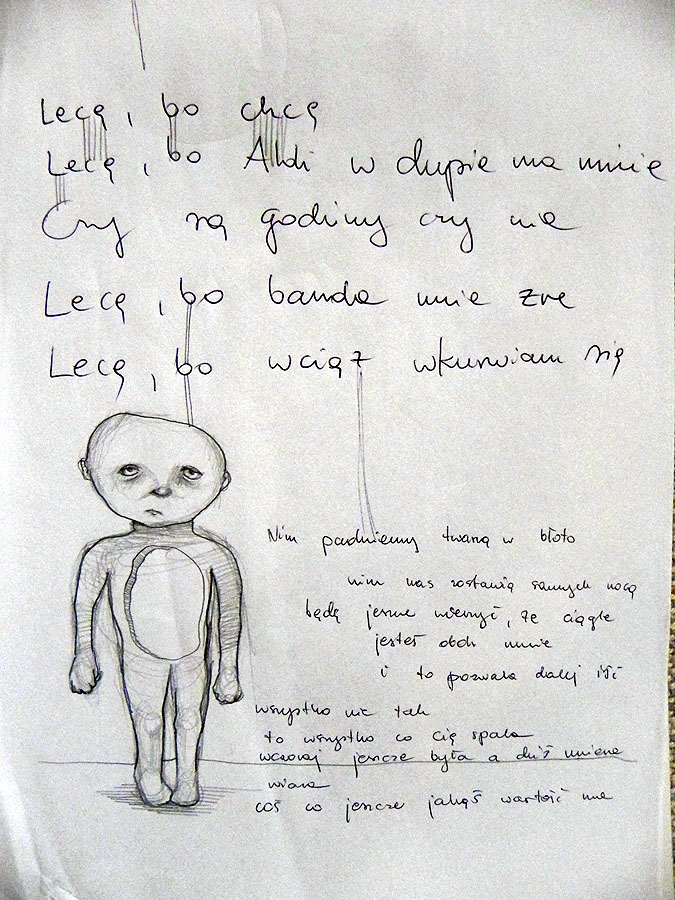 Lecę, bo chcę
Lecę, bo Aldi w dupie ma mnie
Czy są godziny czy nie
Lecę, bo banda mnie żre
Lecę, bo wciąż wkurwiam się
Nim padniemy twarzą w błoto
nim nas zostawią samych nocą
będę jeszcze wierzyć, że ciągle
jesteś obok mnie
i to pozwala dalej iść
wszystko nie tak
to wszystko co cię spala
wczoraj jeszcze była a dziś umiera
wiara
coś co jeszcze jakąś wartość ma